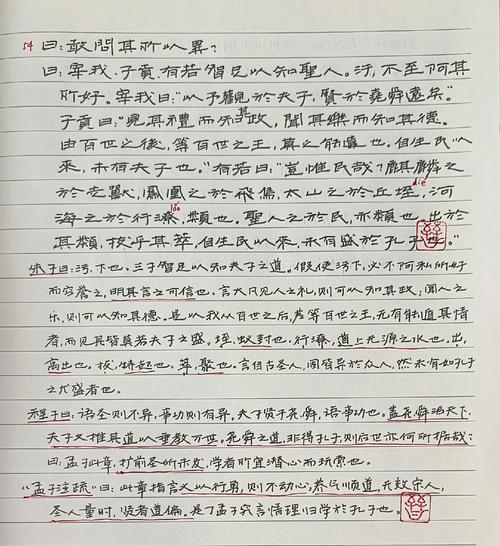 54 曰：敢問其所以異？
曰：宰我、子貢、有若智足以知聖人。汙，不至阿其
所好。宰我曰：“以予觀於夫子，賢於堯舜遠矣。”
子貢曰：“見其禮而知其政，聞其樂而知其德。
由百世之後，等百世之王，莫之能違也。自生民以
來，未有夫子也。”有若曰：“豈惟民哉？麒麟之 dié
於走獸，鳳凰之於飛鳥，太山之於丘垤，河
海之於行潦，類也。聖人之於民，亦類也。出於 lǎo
其類，拔乎其萃，自生民以來，未有盛於孔子也。”
朱子曰：汙，下也。三子智足以知夫子之道。假使汙下，必不阿私所好
而空譽之，明其言之可信也。言大凡見人之礼，则可以知其政；闻人之
乐，则可以知其德。是以我从百世之后，差等百世之王，无有能逃其情
者，而见其皆莫若夫子之盛。垤，蚁封也。行潦，道上无源之水也。出，
高出也。拔，特起也。萃，聚也。言自古圣人，固皆异于众人，然未有如孔子
之尤盛者也。
程子曰：语圣则不异，事功则有异。夫子贤于尧舜，语事功也。盖尧舜治天下，
夫子又推其道以垂教万世。尧舜之道，非得孔子，则后世亦何所据哉？
曰：孟子此章，扩前圣所未发，学者所宜潜心而玩索也。
“孟子注疏”曰：此章指言义以行勇，则不动心，养气顺道，无效宋人，
圣人量时，贤者道偏。是丁孟子究言情理归学於孔子也。